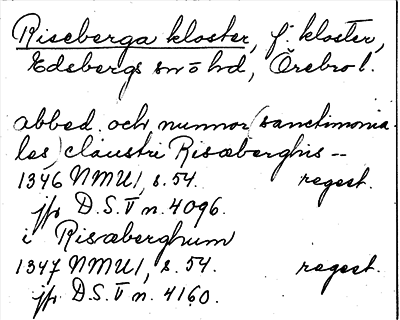 Riseberga kloster, f. kloster,
Edsbergs sn o hd, Örebro l.
abbed. och nunnor (sanctimonia-
les) claustri Risæberghis --
1346 NMU1, s. 54. regest.
jfr D.S. V n. 4096.
i Risæberghum
1347 NMU1, s. 54. regest.
jfr D.S. V n. 4160.